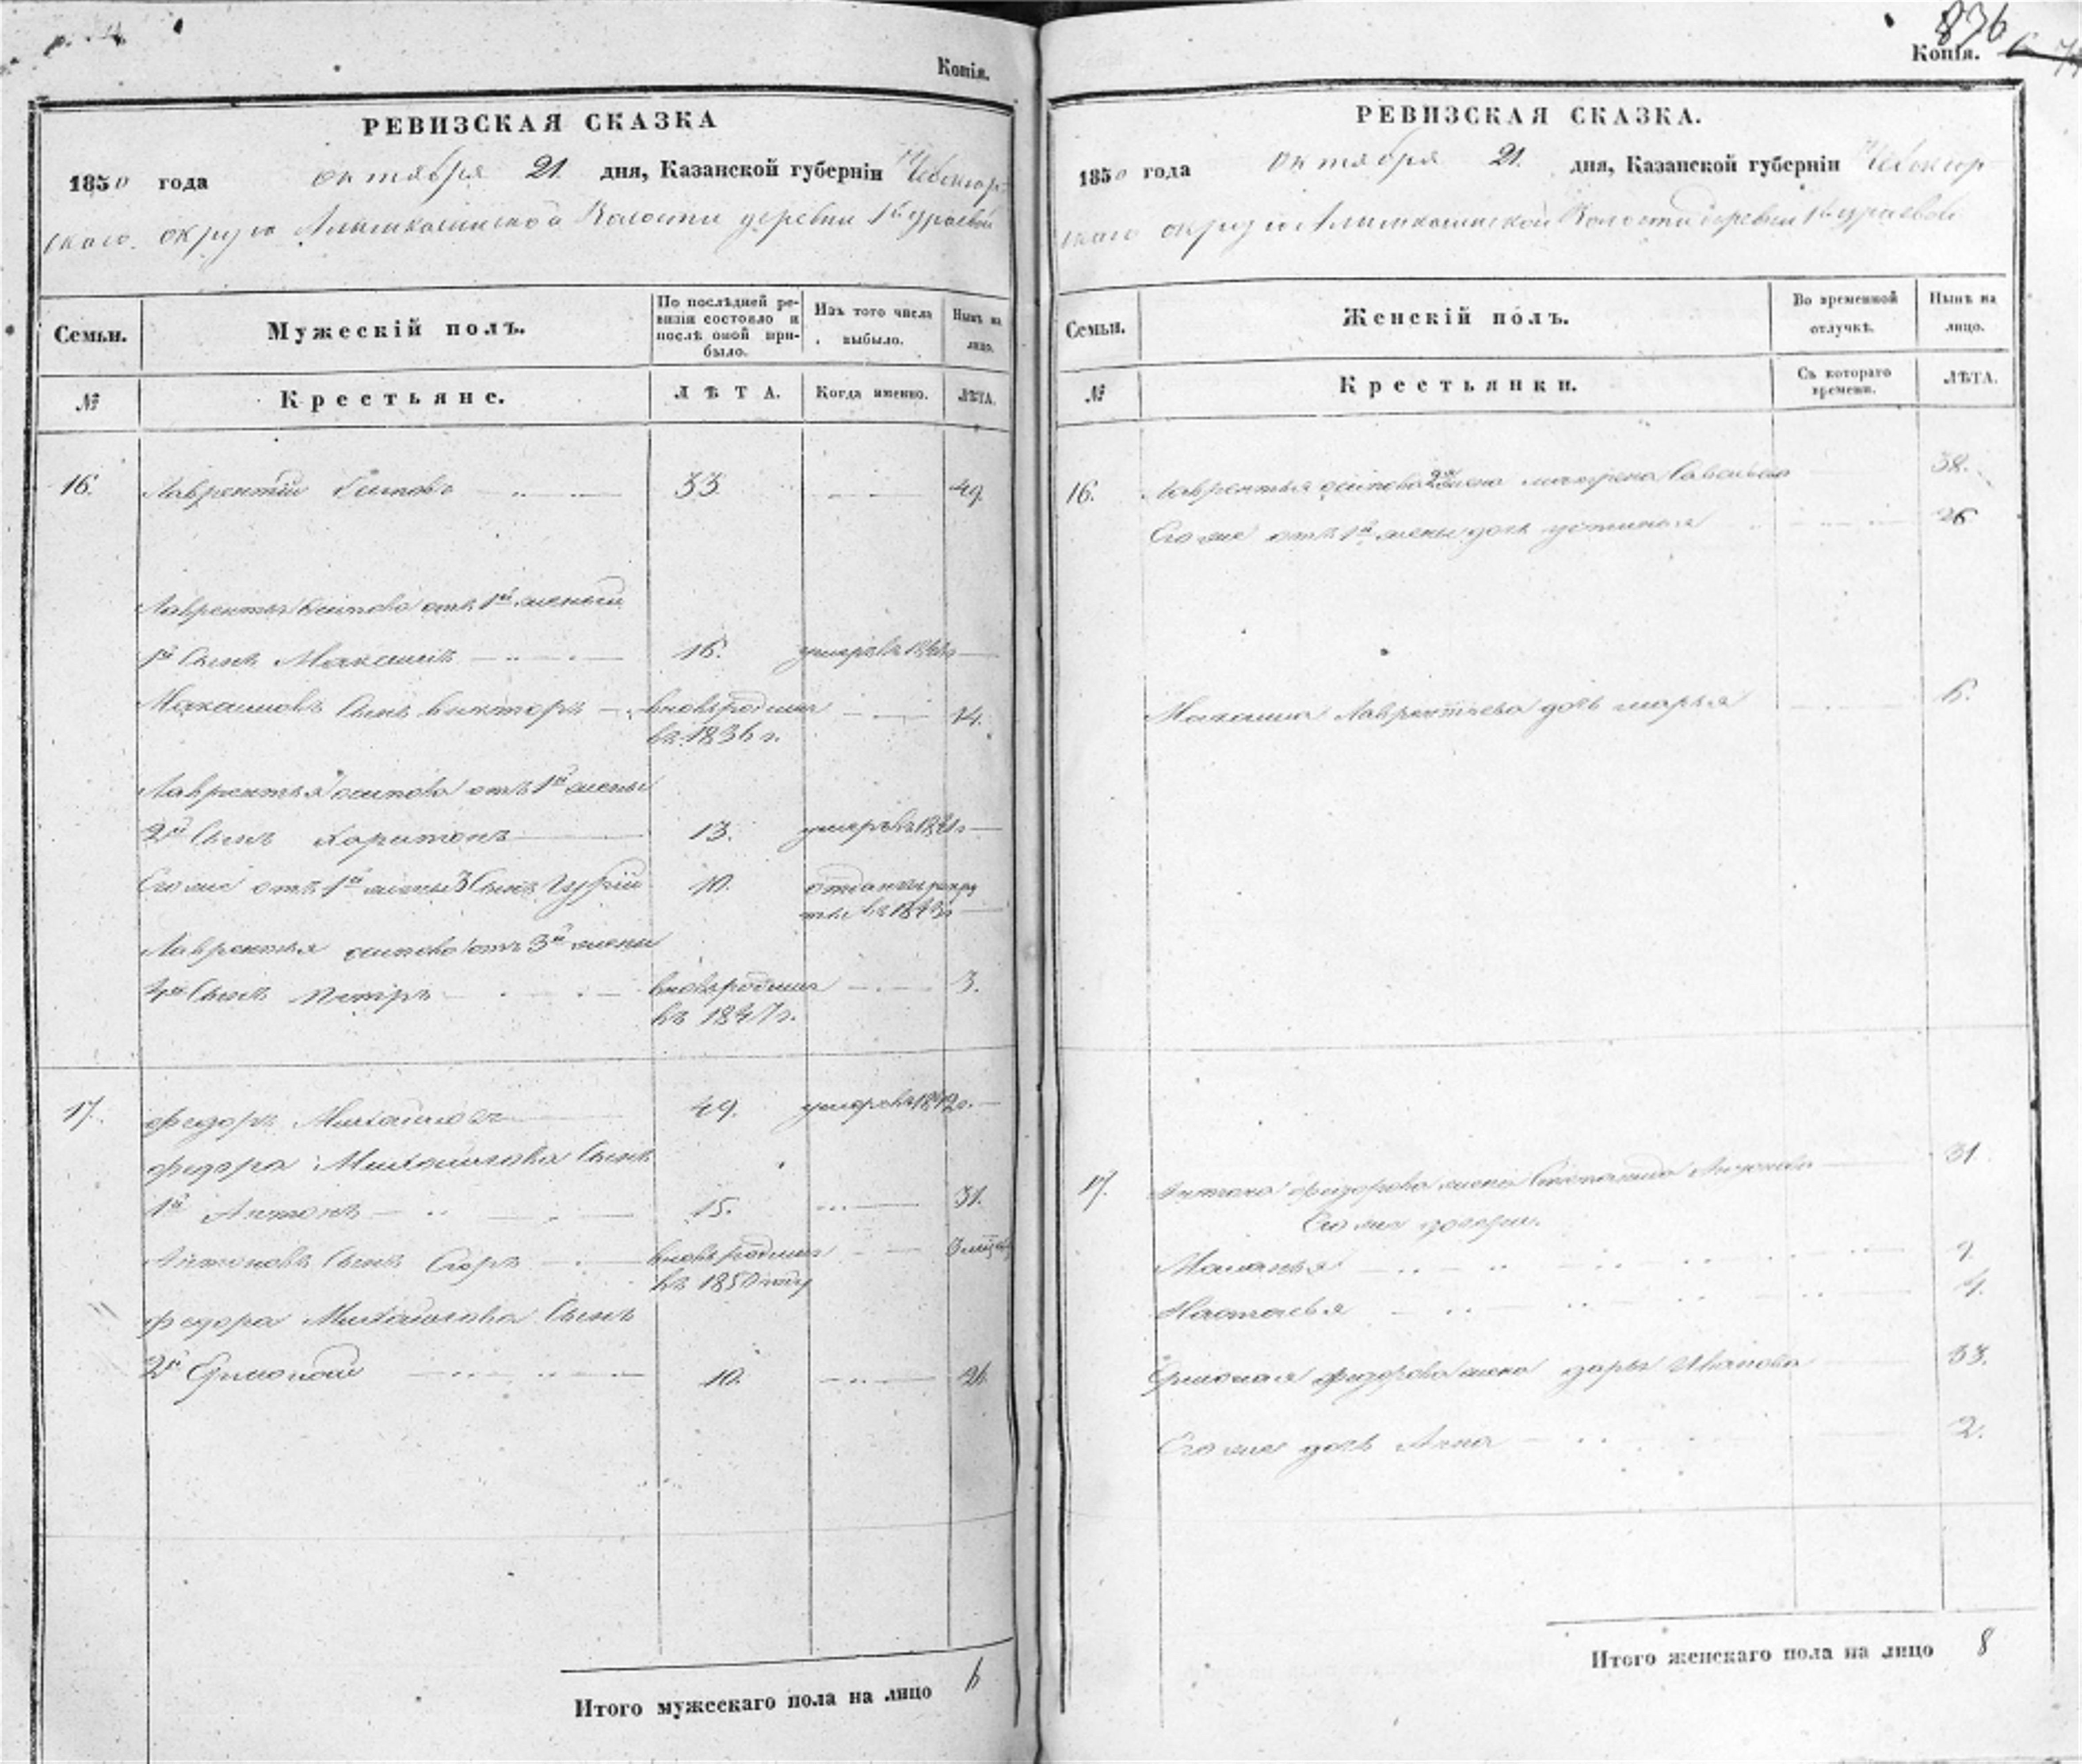 Копія.
РЕВИЗСКАЯ СКАЗКА
1850 года октября 21. дня, Казанской губерніи Чебоксар-
скаго округа Алымкасинской Волости деревни 1й
Семьи. Мужескій полъ. По послѣдней ревизіи состояло и послѣ оной прибыло. Изъ того числа выбыло. Нынѣ на лицо.
№ Крестьяне. ЛѢТА. Когда именно. ЛѢТА.
16. Лаврентій Осиповъ 33 49.
Лаврентья Осипова отъ 1й жены
1й Сынъ Максимъ 16. умеръ въ
Максимовъ Сынъ Викторъ вновь родился 14.
въ 1836 г.
Лаврентья Осипова отъ 1й жены
2й Сынъ Харитонъ 13. умеръ въ 1841 г
Его же отъ 1й жены 3 Сынъ Гурій 10. отданъ въ рекру
ты въ 1843 г
Лаврентья Осипова отъ 3й жены
4й Сынъ Петръ вновь родился 3.
въ 1847 г.
17. Федоръ Михайловъ 49. умеръ въ 1842 г.
Федора Михайлова Сынъ
1й Антонъ 15. 31.
Антоновъ Сынъ вновь родился
въ 1850 году
Федора Михайлова Сынъ
2й Ермолай 10. 26
Итого мужескаго пола на лицо 6
836
Копія.
РЕВИЗСКАЯ СКАЗКА.
1850 года октября 21. дня, Казанской губерніи Чебоксар
скаго округа Алымкасинской Волости деревни 1й
Семьи. Женскій полъ. Во временной отлучкѣ. Нынѣ на лицо.
№ Крестьянки. Съ котораго времени. ЛѢТА.
16. Лаврентья Осипова жена Матрена Савельева 38.
Его же отъ 1й жены дочь Устинья 26
Максима Лаврентьева дочь Марья 6.
17. Антона Федорова жена Степанида 31
Его же дочери.
Маланья 9.
Настасья 4.
Ермолая Федорова жена Дарья Иванова 33.
Его же дочь Анна 2.
Итого женскаго пола на лицо 8